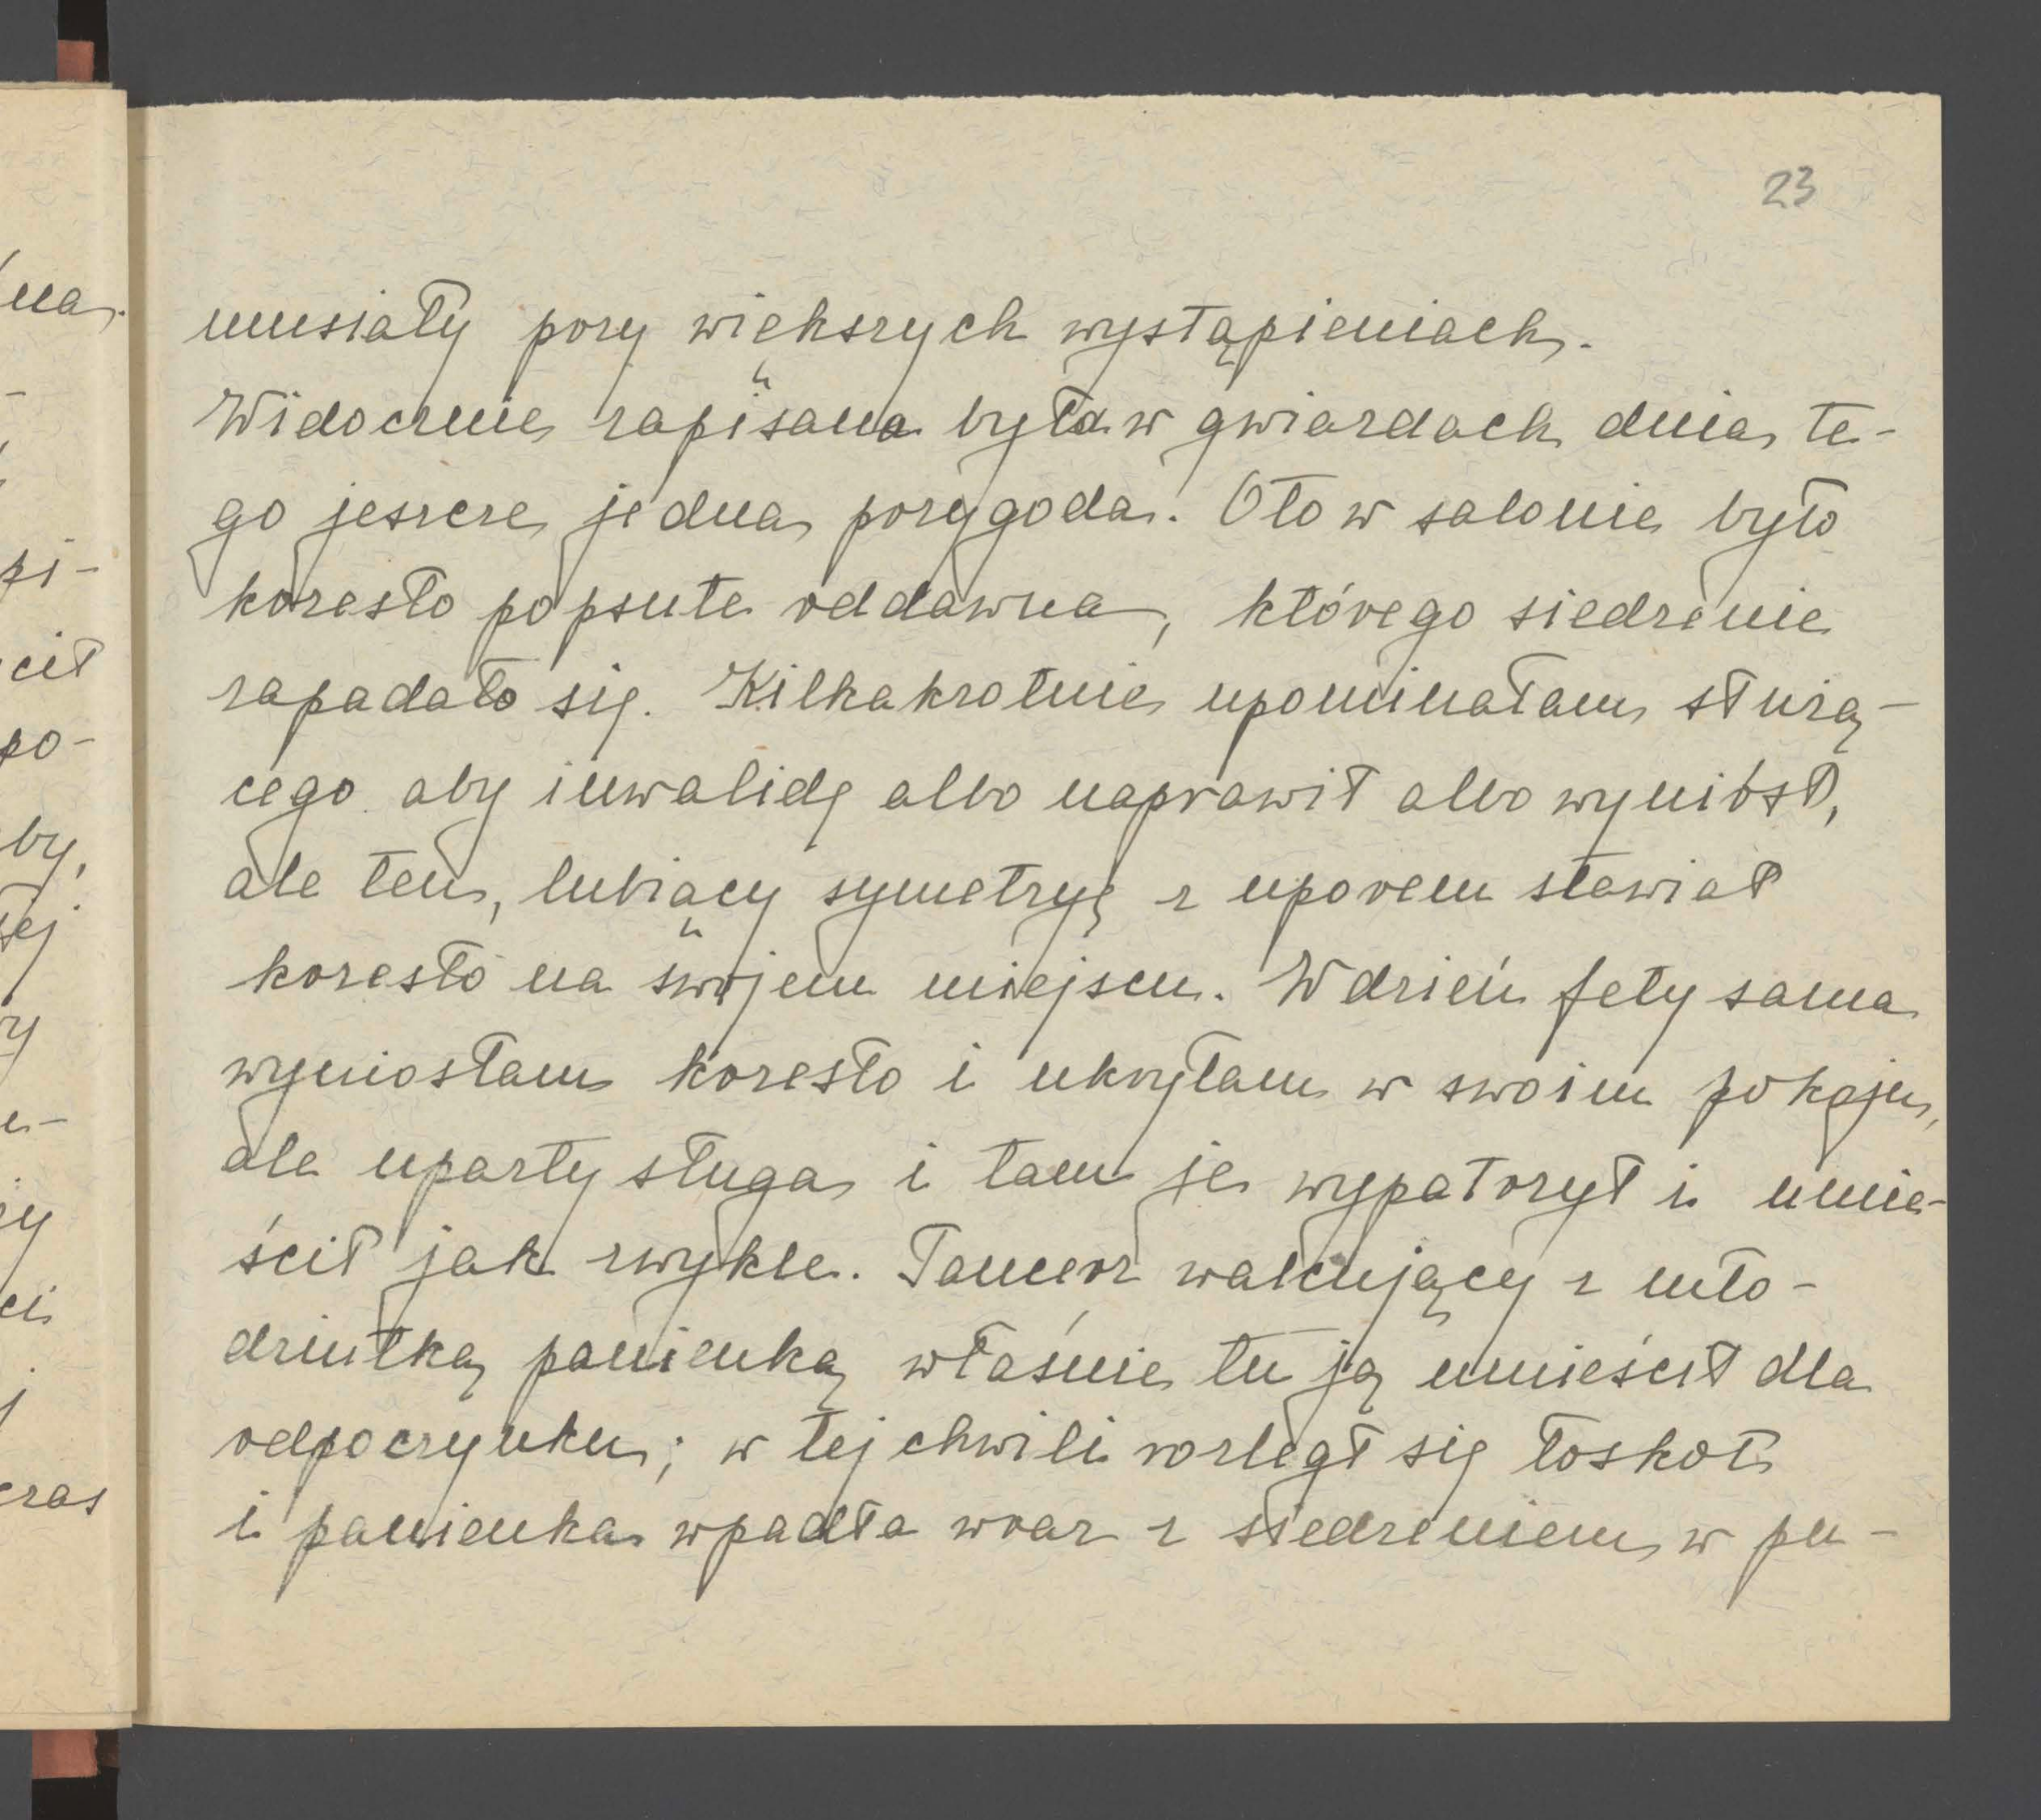 23
musiały przy większych wystąpieniach.
Widocznie zapisana była w gwiazdach dnia te-
go jeszcze jedna przygoda. Oto w salonie było
krzesło popsute oddawna, którego siedzenie
zapadało się. Kilkakrotnie upominałam służą-
cego aby inwalidę albo naprawił albo wyniósł,
ale ten, lubiący symetryę z uporem stawiał
krzesło na swojem miejscu. W dzień fety sama
wyniosłam krzesło i ukryłam w swoim pokoju,
ale uparty sługa i tam je wypatrzył i umie-
ścił jak zwykle. Tancerz walcujący z mło-
dziutką panienką właśnie tu ją umieścił dla
odpoczynku; w tej chwili rozległ się łoskot
i panienka wpadła wraz z siedzeniem w pu-